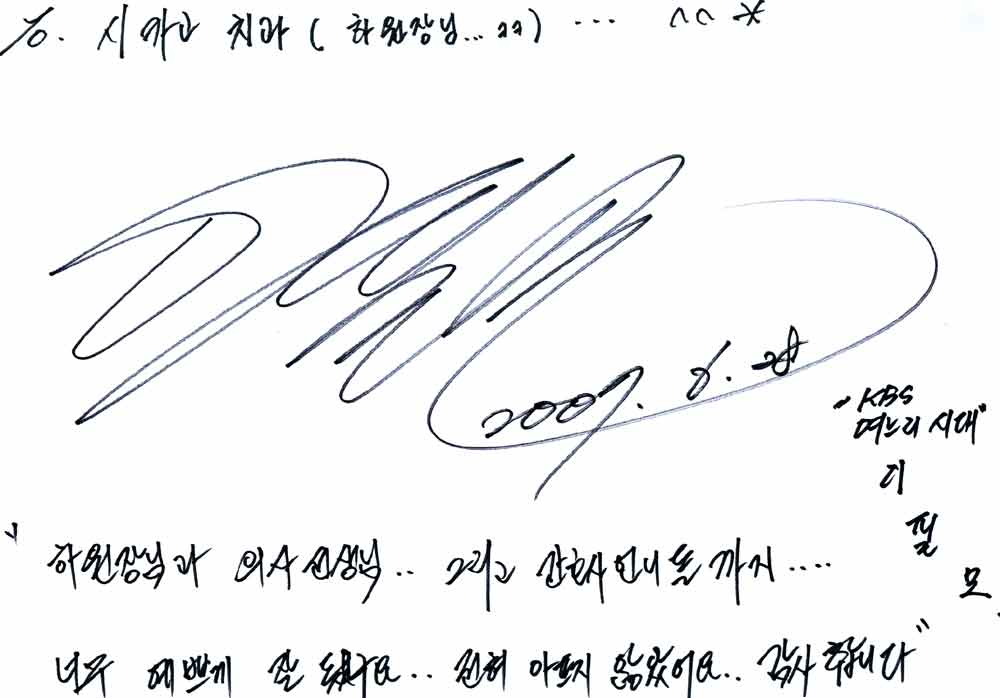 To. 시카고 치과 ( 하원장님... ㄲㄲ) ... ^^*
2007. 6. 28
"KBS
며느리 시대"
이
필
모.
"하원장님과 의사선생님.. 그리고 간호사언니들까지....
너무 예쁘게 잘 됐구요.. 전혀 아프지 않았어요.. 감사합니다"